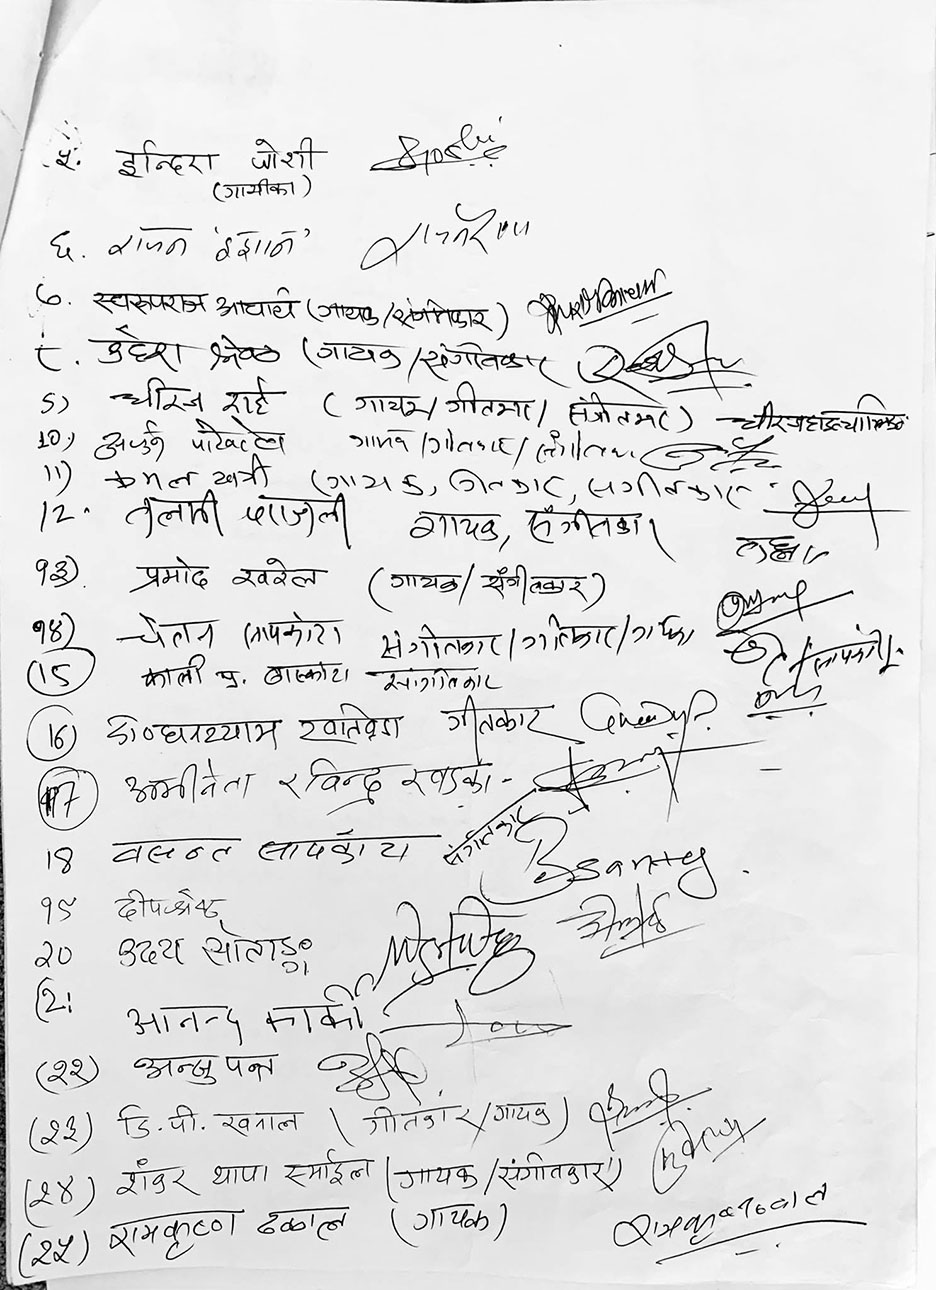 ५. इन्दिरा जोशी
(गायीका)
६. राजन 'ईशान'
७. स्वरुपराज आचार्य (गायक/संगीतकार)
८. उद्देश श्रेष्ठ (गायक/संगीतकार
९) धीरज राई (गायक/गीतकार/संगीतकार)
10) अर्जुन पोखरेल गायक/गीतकार/संगीतकार
11) कमल खत्री (गायक, गितकार, संगीतकार
12. पराजुली गायक, संगीतकार
१३). प्रमोद खरेल (गायक/संगीतकार)
१४) चेतन सापकोटा संगीतकार/गीतकार/गायक
15 काली प्र. बास्कोटा संगीतकार
16) डा० घनश्याम खतिवडा गीतकार
17) अभीनेता रविन्द्र खड्का -
18 वसन्त सापकोटा संगीतकार Bsanta
१९ दीप श्रेष्ठ
२० उदय सोताङ्ग
२१ आनन्द कार्की
(२२) अन्जु पन्त
(२३) डि.पी. खनाल (गीतकार/गायक)
(२४) शंकर थापा स्माईल (गायक/संगीतकार)
(२५) रामकृष्ण ढकाल (गायक) रामकृष्ण ढकाल